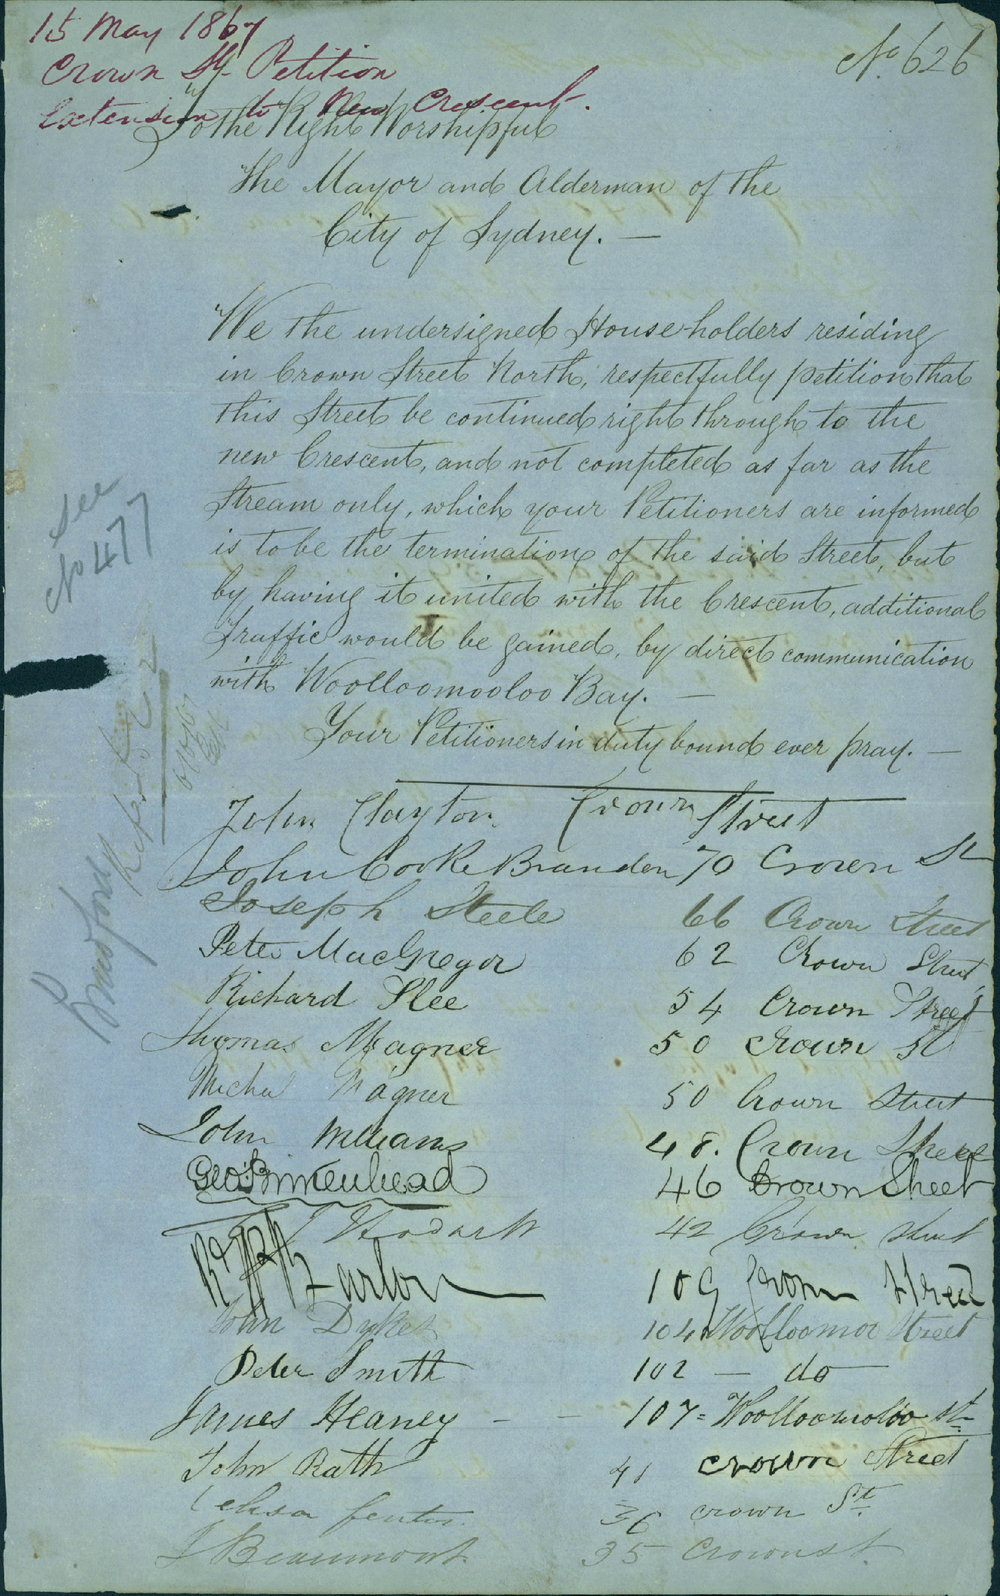 15 May 1867
Crown St. Petition
Extension to New Crescent.
No. 626
To the Right Worshipful
The Mayor and Alderman of the
City of Sydney. —
We the undersigned House holders residing
in Crown Street North, respectfully petition that
this Street be continued right through to the
new Crescent, and not completed as far as the
Stream only, which your Petitioners are informed
is to be the termination of the said Street, but
by having it united with the Crescent, additional
traffic would be gained, by direct communication
with Woolloomooloo Bay. —
Your Petitioners in duty bound ever pray. —
See
No 477
John Clayton. Crown Street
John Cooke Brandon 70 Crown St
Joseph Steele 66 Crown Street
Peter MacGregor 62 Crown Street
Richard Slee 54 Crown Street
Thomas Magner 50 Crown St
Michel Magner 50 Crown Street
John Williams 48. Crown Street
Geo Birkenhead 46 Crown Street
42 Crown Street
Barlow 109 Crown Street
John Dykes 104 Woolloomoo Street
Peter Smith 102 — do —
James Heaney - - 107 = Woolloomoloo St
John Rath 41 Crown Street
36 crown St.
J Beaumont 35 Crown st.